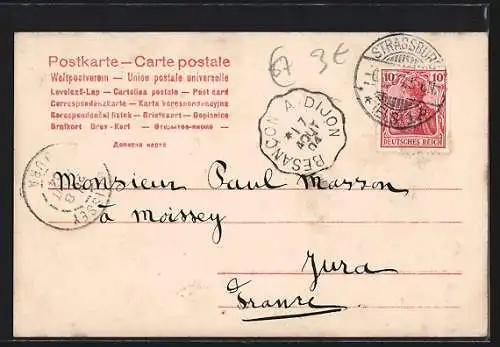 Postkarte — Carte postale
Weltpostverein — Union postale universelle
Levelező-Lap — Cartolina postale — Post card
Correspondenzkarte — Karta korespondencyjna
Korespondenční lístek — Briefkaart — Dopisnice
Brefkort Brev-Kort — Открытое письмо —
67 3 €
BESANÇON A DIJON
7
AOUT
04
STRASSBURG
10 10
DEUTSCHES REICH
MOISSEY
JURA
Monsieur Paul Masson
à Moissey
Jura
France